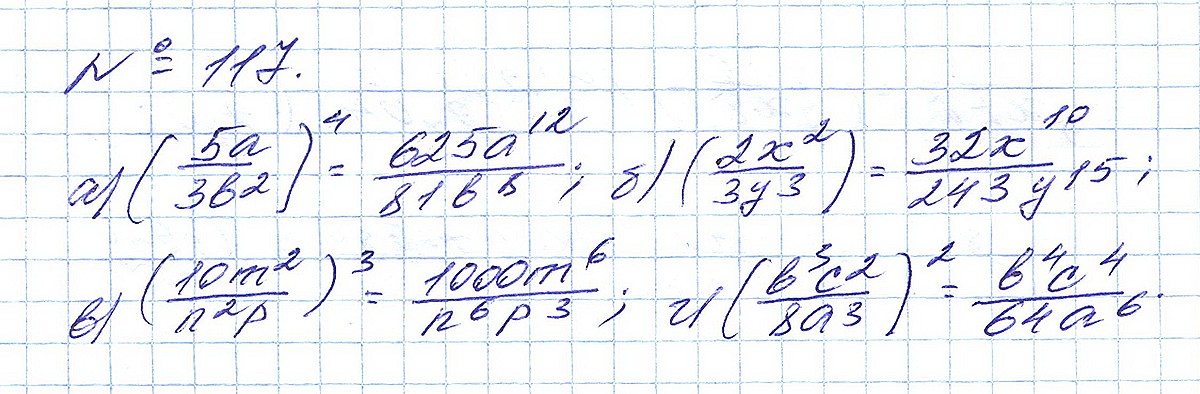 № 117.
а) (5a/3b²)⁴ = 625a¹²/81b⁸; б) (2x²/3y³) = 32x¹⁰/243y¹⁵;
в) (10m²/n²p)³ = 1000m⁶/n⁶p³; г) (b³c²/8a³)² = b⁴c⁴/64a⁶.